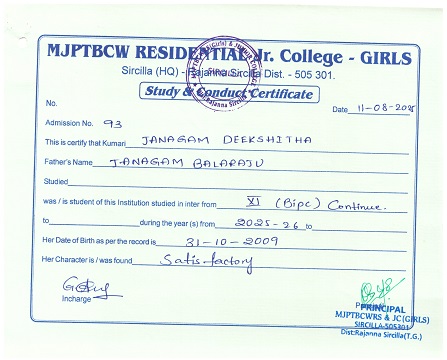 MJPTBCW RESIDENTIAL Jr. College - GIRLS
Sircilla (HQ) - Rajanna Sircilla Dist. - 505 301.
Study & Conduct Certificate
No.
Date 11-08-2025
Admission No. 93
This is certify that Kumari JANAGAM DEEKSHITHA
Father's Name JANAGAM BALARAJU
Studied
was / is student of this Institution studied in inter from XI (Bipc) Continue.
to during the year (s) from 2025-26 to
Her Date of Birth as per the record is 31-10-2009
Her Character is / was found Satisfactory
Incharge
PRINCIPAL
MJPTBCWRS & JC(GIRLS)
SIRCILLA-505301
Dist:Rajanna Sircilla(T.G.)